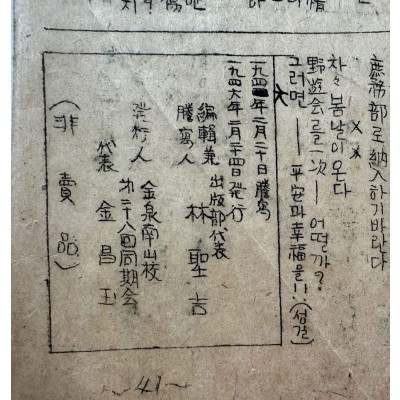 庶務部로 納入하기바란다
× ×
차々봄날이온다
野遊会를一次— 어떨가?
그러면—— 平安과幸福을!! (성길)
二月二十日 謄寫
一九四六年二月二十四日発行
編輯兼 出版部代表
謄寫人 林聖吉
発行人 金泉南山校
第二十八回同期会
代表 金昌玉
(非賣品)
~41~